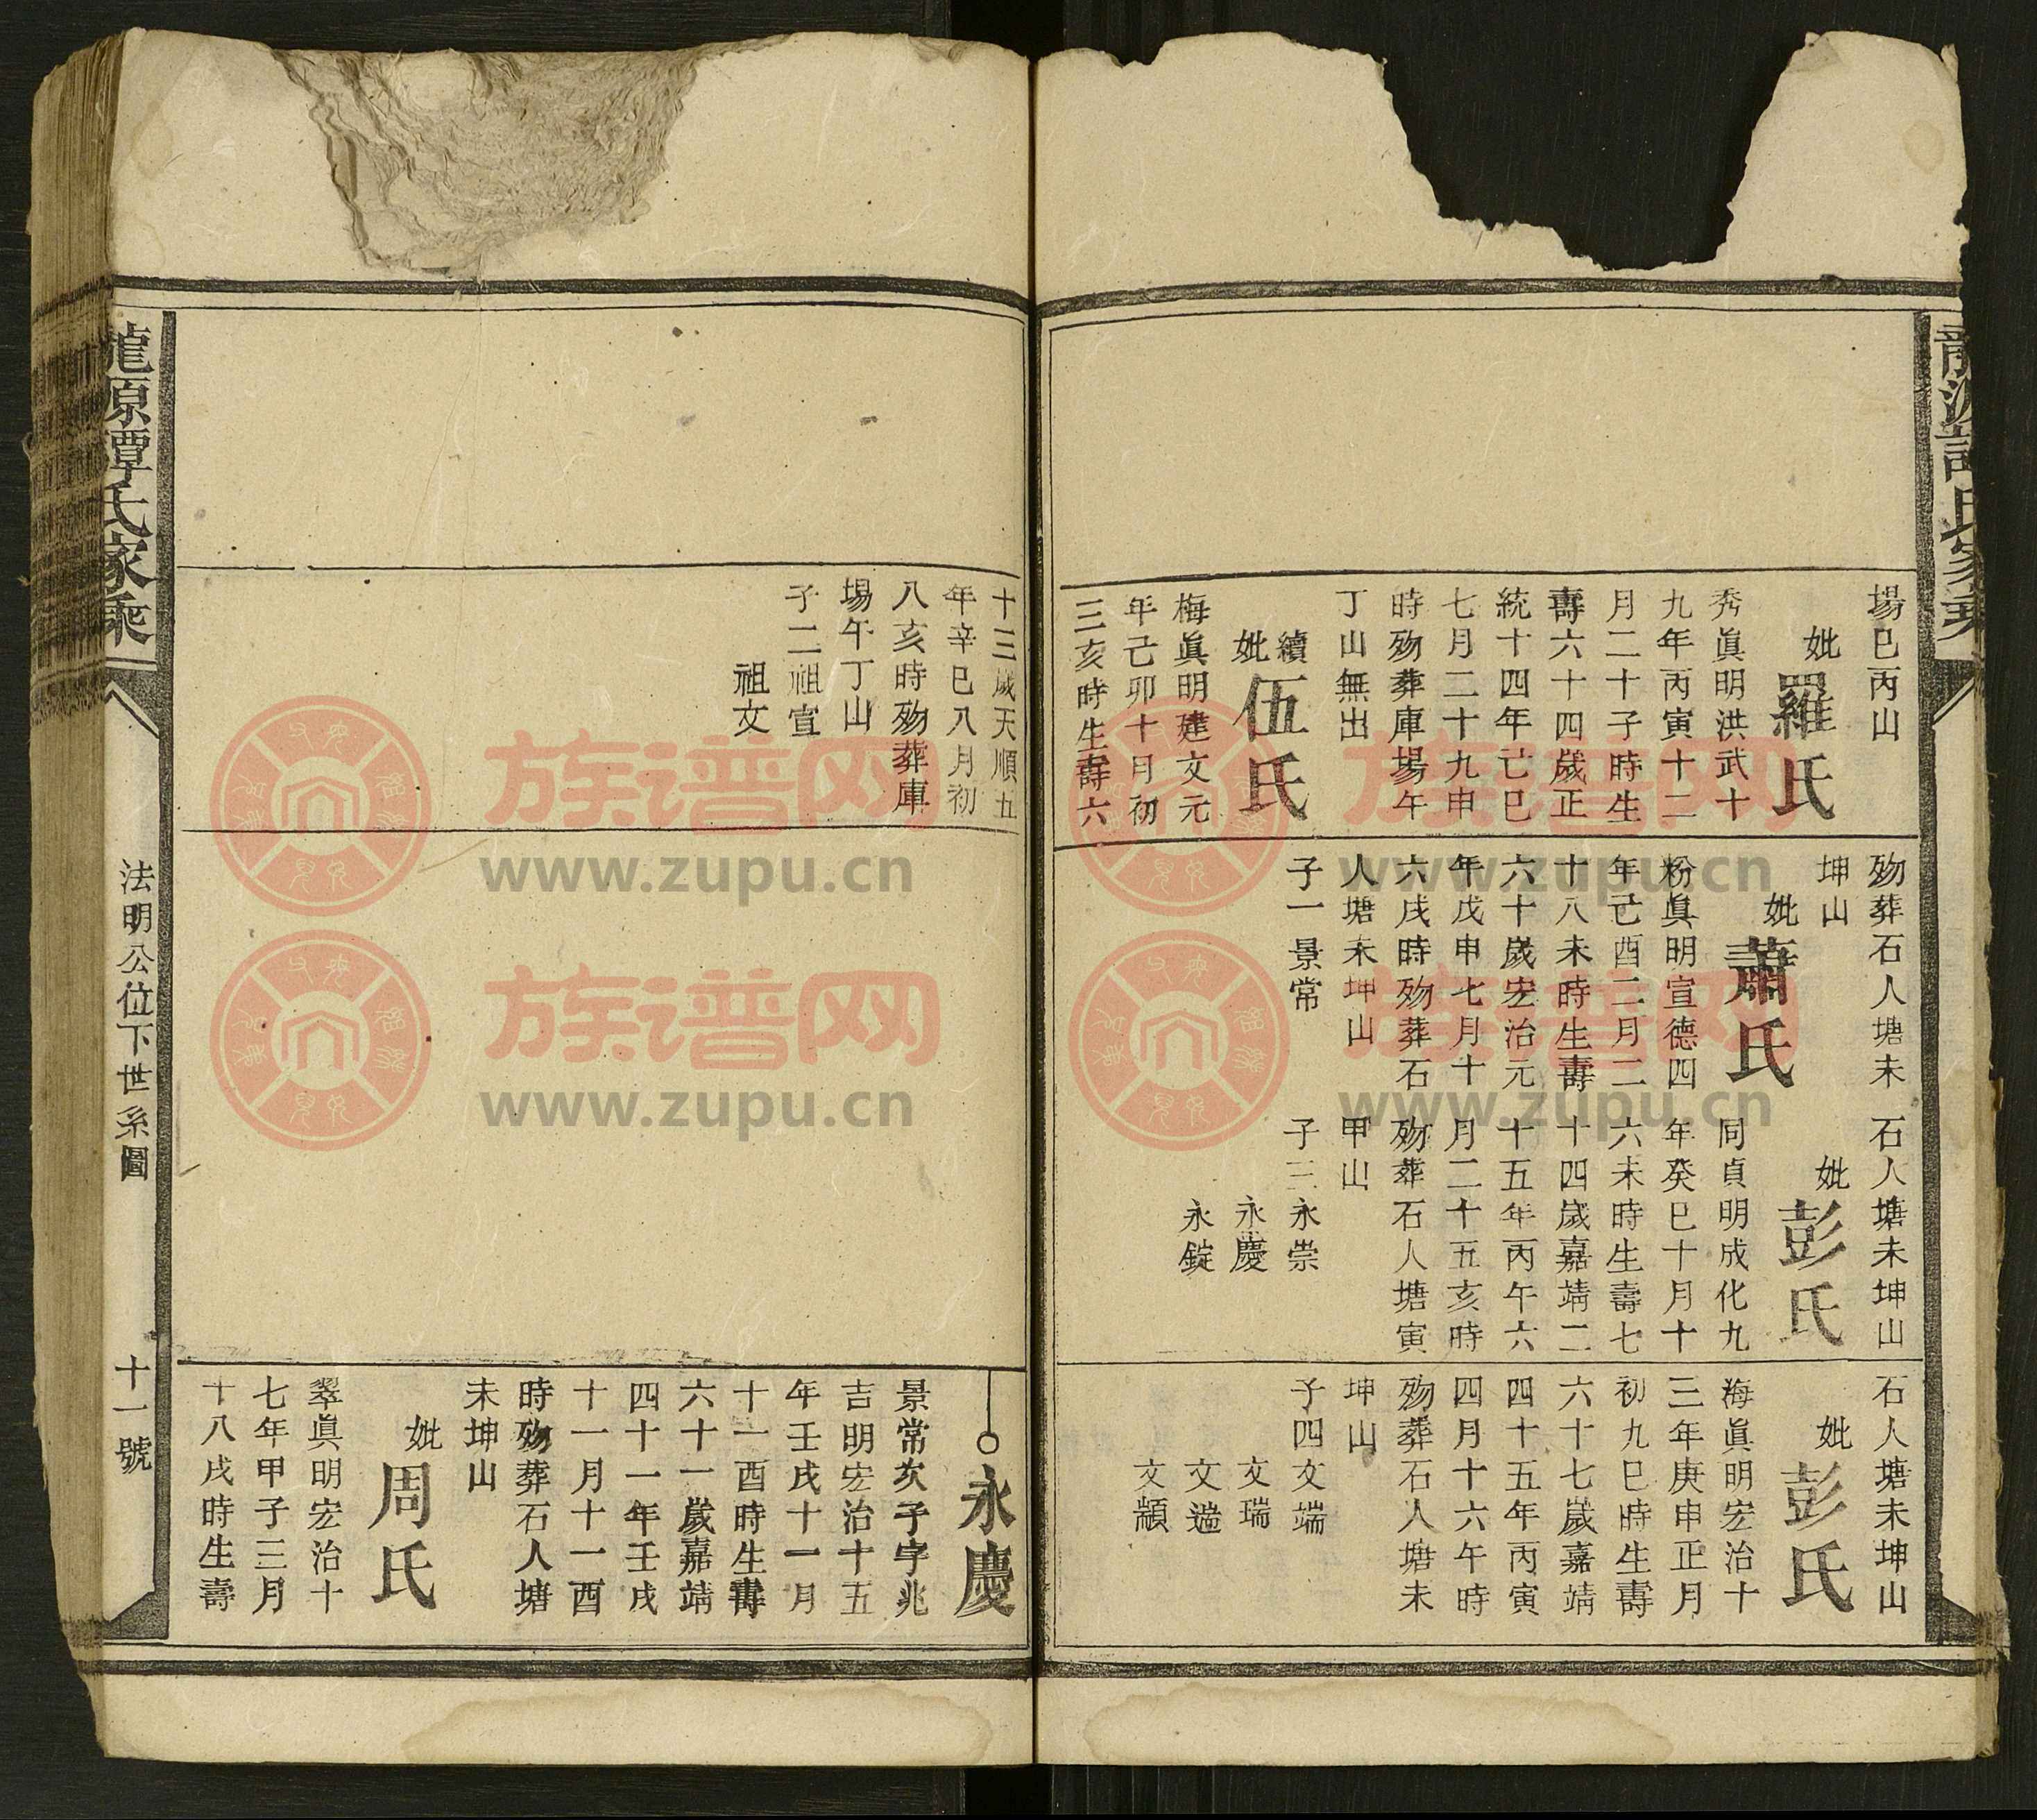 場巳丙山
妣羅氏
秀眞明洪武十
九年丙寅十二
月二十子時生
壽六十四歲正
統十四年己巳
七月二十九申
時歿葬庫場午
丁山無出
續妣伍氏
梅眞明建文元
年己卯十月初
三亥時生壽六
歿葬石人塘未
坤山
妣蕭氏
粉眞明宣德四
年己酉二月二
十八未時生壽
六十歲宏治元
年戊申七月十
六戌時歿葬石
人塘未坤山
子一景常
石人塘未坤山
妣彭氏
同貞明成化九
年癸巳十月十
六未時生壽七
十四歲嘉靖二
十五年丙午六
月二十五亥時
歿葬石人塘寅
甲山
子三永崇
永慶
永錠
石人塘未坤山
妣彭氏
海眞明宏治十
三年庚申正月
初九巳時生壽
六十七歲嘉靖
四十五年丙寅
四月十六午時
歿葬石人塘未
坤山
子四文端
文瑞
文遄
文顓
十三歲天順五
年辛巳八月初
八亥時歿葬庫
場午丁山
子二祖宣
祖文
永慶
景常次子字兆
吉明宏治十五
年壬戌十一月
十一酉時生壽
六十一歲嘉靖
四十一年壬戌
十一月十一酉
時歿葬石人塘
未坤山
妣周氏
翠眞明宏治十
七年甲子三月
十八戌時生壽
龍源譚氏家乘
法明公位下世系圖
十一號
族谱网
www.zupu.cn
族谱网
www.zupu.cn
族谱网
www.zupu.cn
族谱网
www.zupu.cn